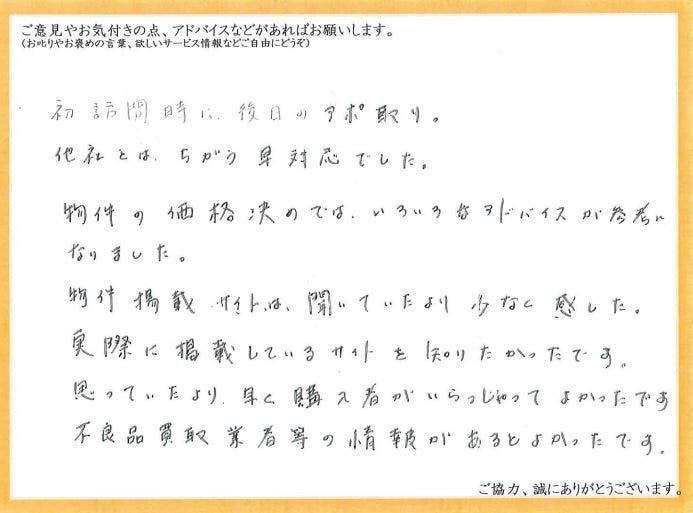 ご意見やお気付きの点、アドバイスなどがあればお願いします。
(お叱りやお褒めの言葉、欲しいサービス情報などご自由にどうぞ)
初訪問時に、後日のアポ取り。
他社とは、ちがう早対応でした。
物件の価格決めでは、いろいろなアドバイスが参考に
なりました。
物件掲載サイトは、聞いていたより少なく感じた。
実際に掲載しているサイトを知りたかったです。
思っていたより、早く購入者がいらっしゃってよかったです
不良品買取業者等の情報があるとよかったです。
ご協力、誠にありがとうございます。